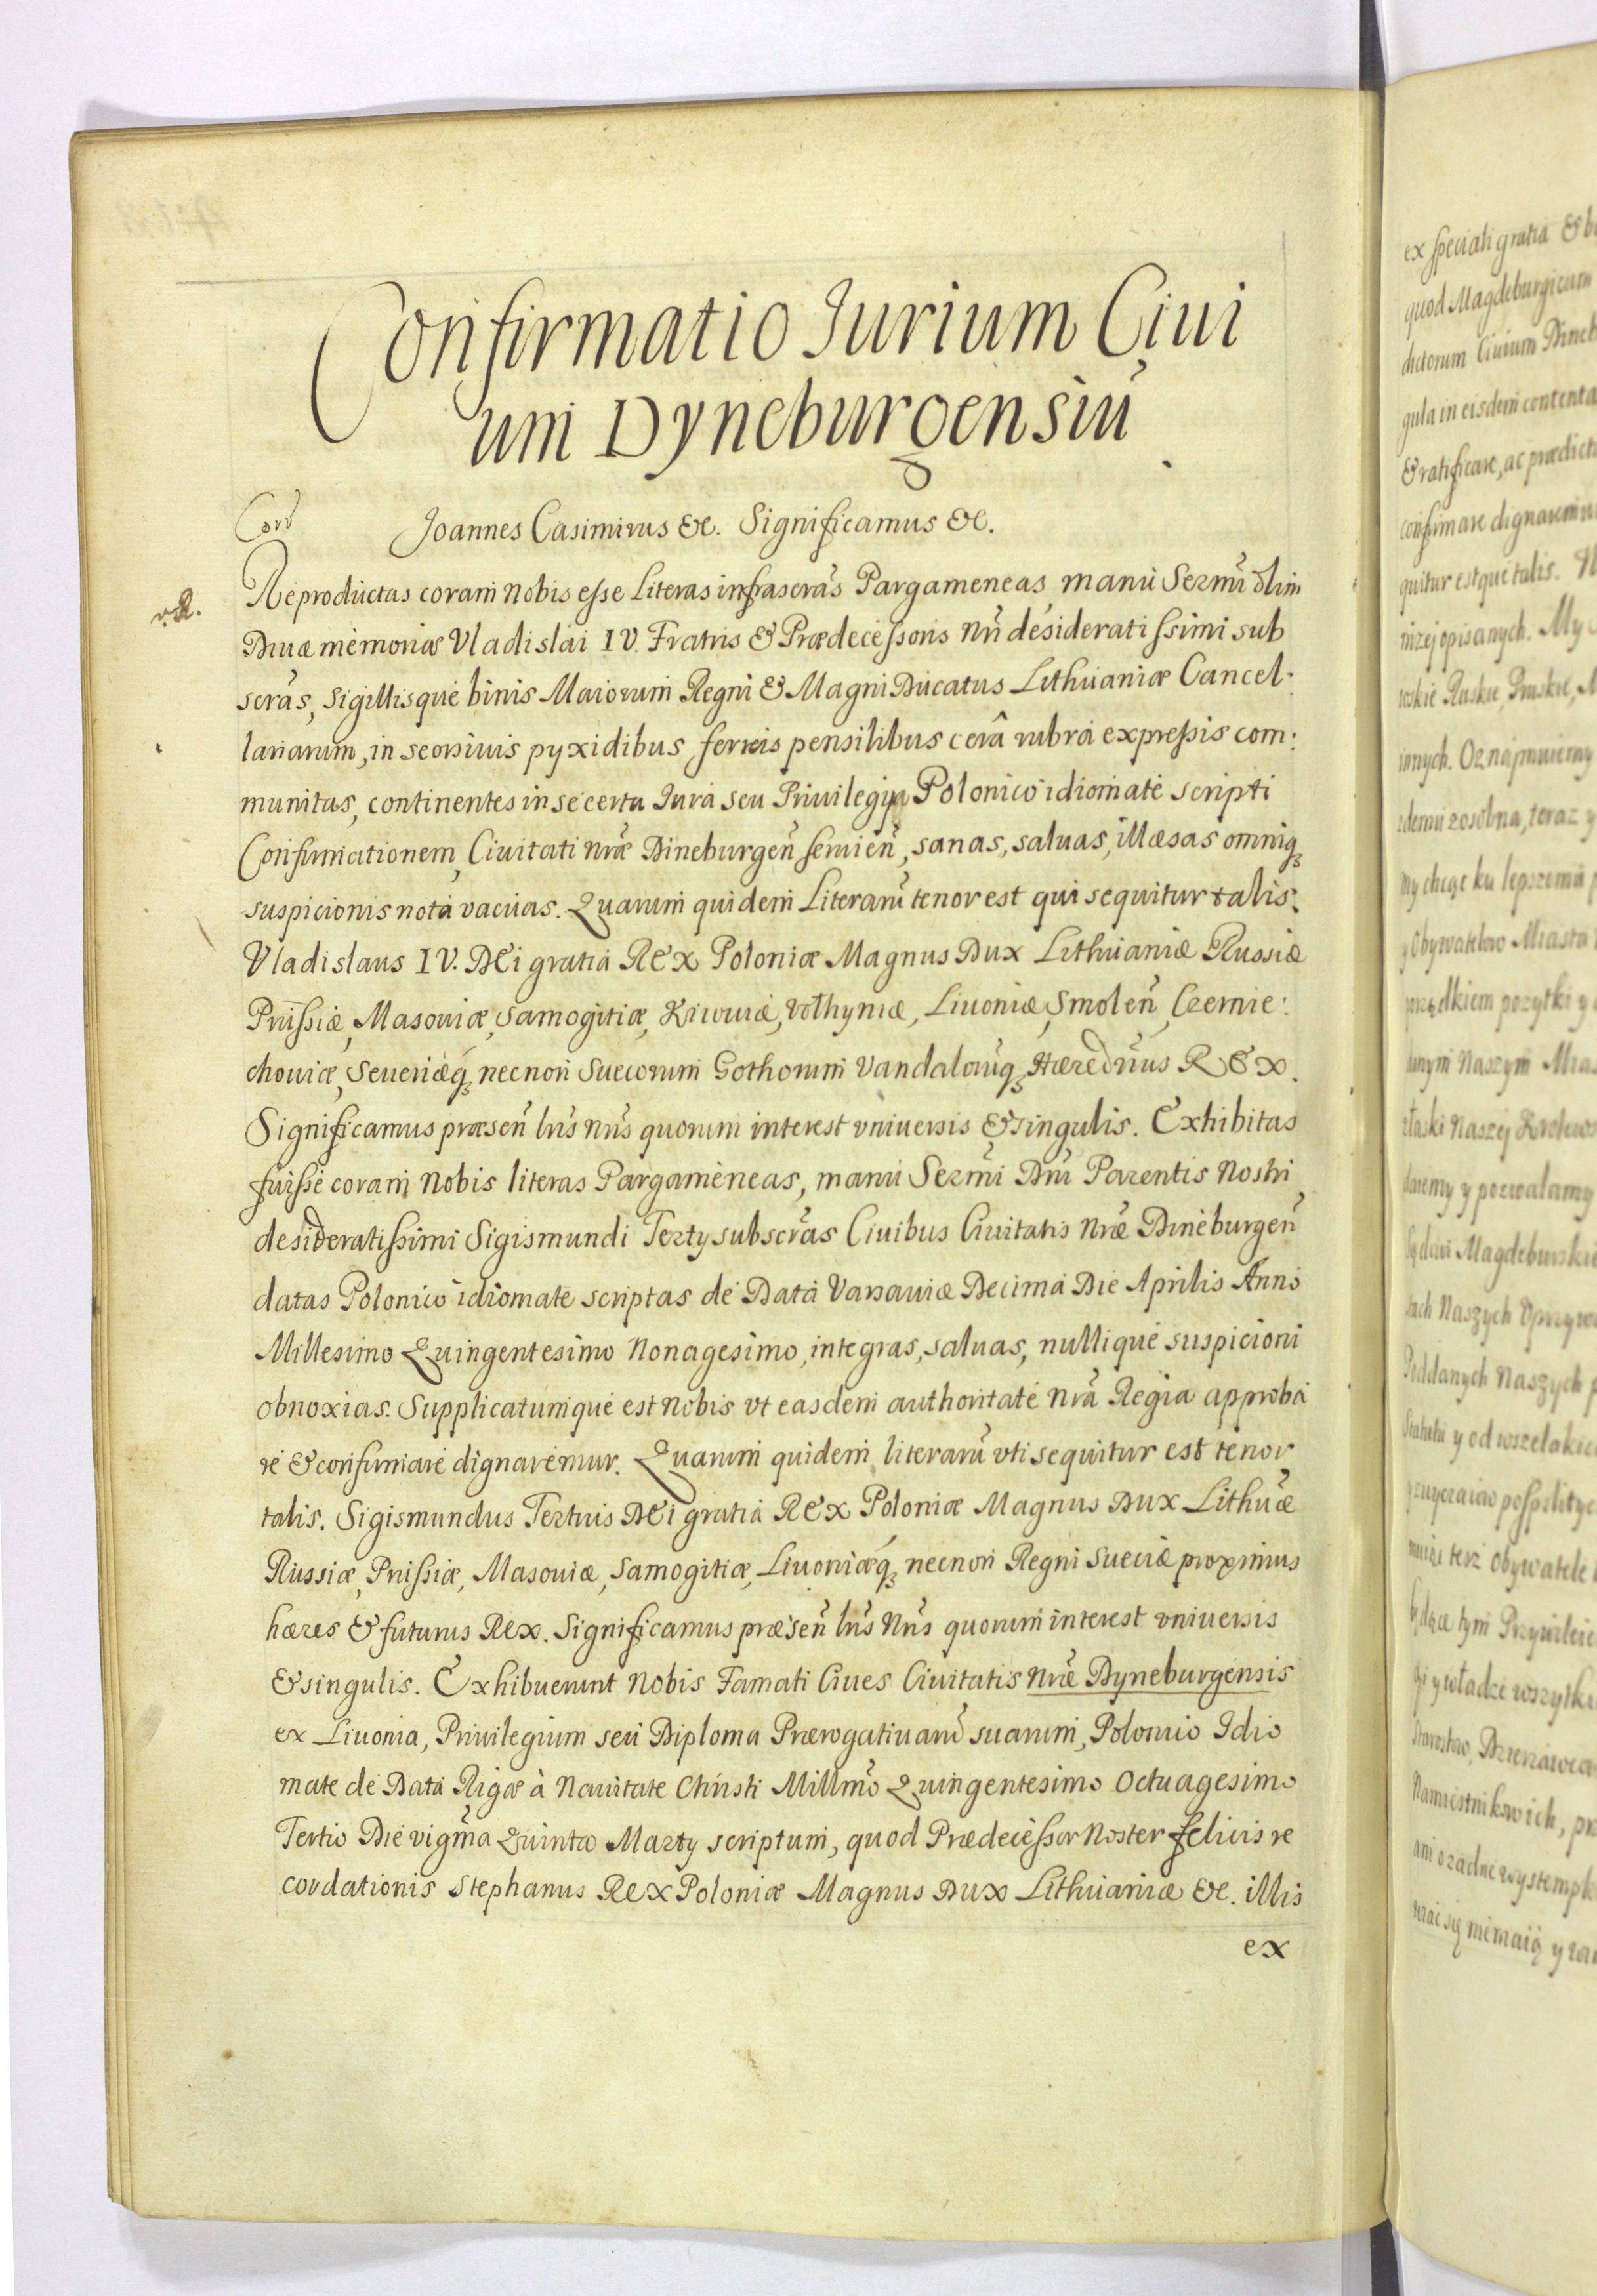 Confirmatio Iurium Ciui
um Dyneburgensiũ
Cord
Joannes Casimirus &c. Significamus &c.
v. R.
Reproductas coram Nobis esse Literas infrascrãs Pargameneas manu Sermĩ olim
Diuæ memoriæ Vladislai IV. Fratris & Prædecessoris Nrĩ desideratissimi sub
scrãs, Sigillisque binis Maiorum Regni & Magni Ducatus Lithuaniæ Cancel:
lariarum, in seorsiuis pyxidibus ferreis pensilibus cerâ rubra expressis com:
munitas, continentes in se certa Iura seu Priuilegya Polonico idiomate scripti
Confirmationem, Ciuitati nræ Dineburgeñ seruieñ, sanas, saluas, illæsas omniq̃
suspicionis nota vacuas. Quarum quidem Literarũ tenor est qui sequitur talis.
Vladislaus IV. DEi gratia REx Poloniæ Magnus Dux Lithuaniæ Russiæ
Prussiæ, Masouiæ, Samogitiæ, Kiiouiæ, Volhyniæ, Liuoniæ, Smoleñ, Czernie:
chouiæ, Seueriæq̃ necnon Suecorum Gothorum Vandalorũq̃ Hæredrius REx.
Significamus præseñ lrĩs nrĩs quorum interest vniuersis & singulis. Exhibitas
fuisse coram Nobis literas Pargameneas, manu Sermĩ Dnĩ Parentis Nostri
desideratissimi Sigismundi Terty subscrãs Ciuibus Ciuitatis Nræ Dineburgeñ
datas Polonico idiomate scriptas de Data Varsauiæ Decima Die Aprilis Anno
Millesimo Quingentesimo Nonagesimo, integras, saluas, nullique suspicioni
obnoxias. Supplicatumque est Nobis vt easdem authoritate nrã Regia approba
re & confirmare dignaremur. Quarum quidem literarũ vti sequitur est tenor
talis. Sigismundus Tertius DEi gratia REx Poloniæ Magnus Dux Lithuæ
Russiæ, Prussiæ, Masouiæ, Samogitiæ, Liuoniæq̃ necnon Regni Sueciæ proximus
hæres & futurus REx. Significamus præseñ lrĩs Nrĩs quorum interest vniuersis
& singulis. Exhibuerunt Nobis Famati Ciues Ciuitatis Nræ Dyneburgensis
ex Liuonia, Priuilegium seu Diploma Prærogatiuarũ suarum, Polonico Idio
mate de Data Rigæ à Natiuitate Christi Millmõ Quingentesimo Octuagesimo
Tertio Die vigmã Quinta Marty scriptum, quod Prædecessor Noster felicis re
cordationis Stephanus REx Poloniæ Magnus Dux Lithuaniæ &c. illis
ex
ex speciali gratia &
quod Magdeburgicum
dictorum Ciuium Dineb
gula in eisdem contenta
& ratificare, ac prædict
confirmare dignaremur
quitur estque talis.
niżej opisanych. My
Ruskie, Pruskie,
innych. Oznajmuiemy
zosobna, teraz y
my chcąc ku lepszemu
y Obywatelow Miasta
pożytki y
Naszym Mias
złaski Naszej Krolews
daiemy y pozwalamy
Magdeburskie
Naszych
Poddanych Naszych p
Statutu y od wszelakie
pospolitye
też Obywatele
będąc tym Przywileie
y władze wszytki
Starostow, Dzierżawca
Namiestnikow ich, pr
ani o żadne wystempk
się niemaią y